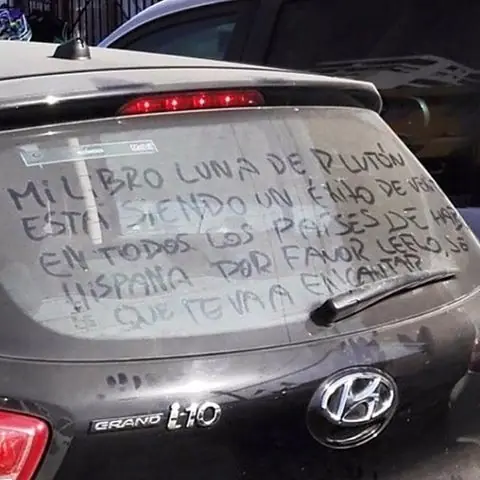 MI LIBRO LUNA DE PLUTÓN
ESTÁ SIENDO UN ÉXITO DE
EN TODOS LOS PAÍSES DE
HISPANA POR FAVOR LEELO, SÉ
QUE TE VA A ENCANTAR
GRAND i10